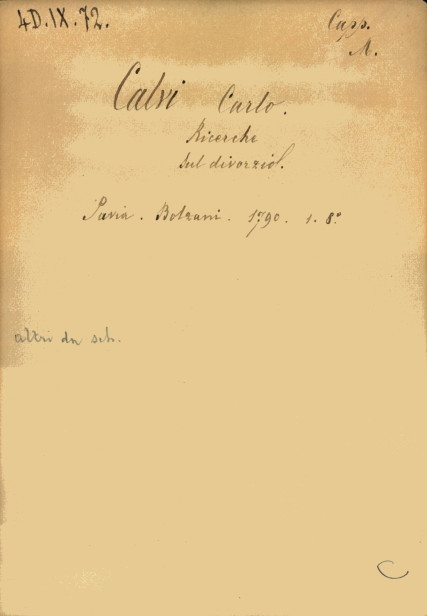 4D.IX.72.
Capp.
M.
Calvi Carlo.
Ricerche
sul divorzio.
Pavia. Bolzani. 1790. 1. 8.º
altri da sch.
C